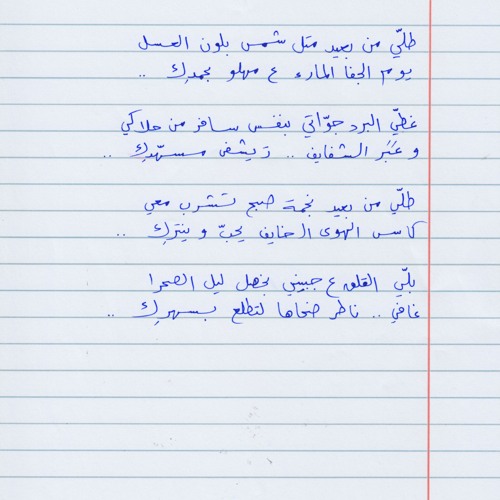 طلّي من بعيد متل شمس بلون العسل
يوم الجفا المارء ع مهلو بجمدِك ..
غطّي البرد جوّاتي بنفس سافر من حلاكي
و عَبَر الشفايف .. تَيشفى مسهّدِك ..
طلّي من بعيد نجمة صبح تتشرب معي
كاس الهوى الخايف يحبّ وينترِك ..
بلّي القلق ع جبيني بخصل ليل الصحرا
غافي .. ناطر ضحاها لتطلع بسهرِك ..